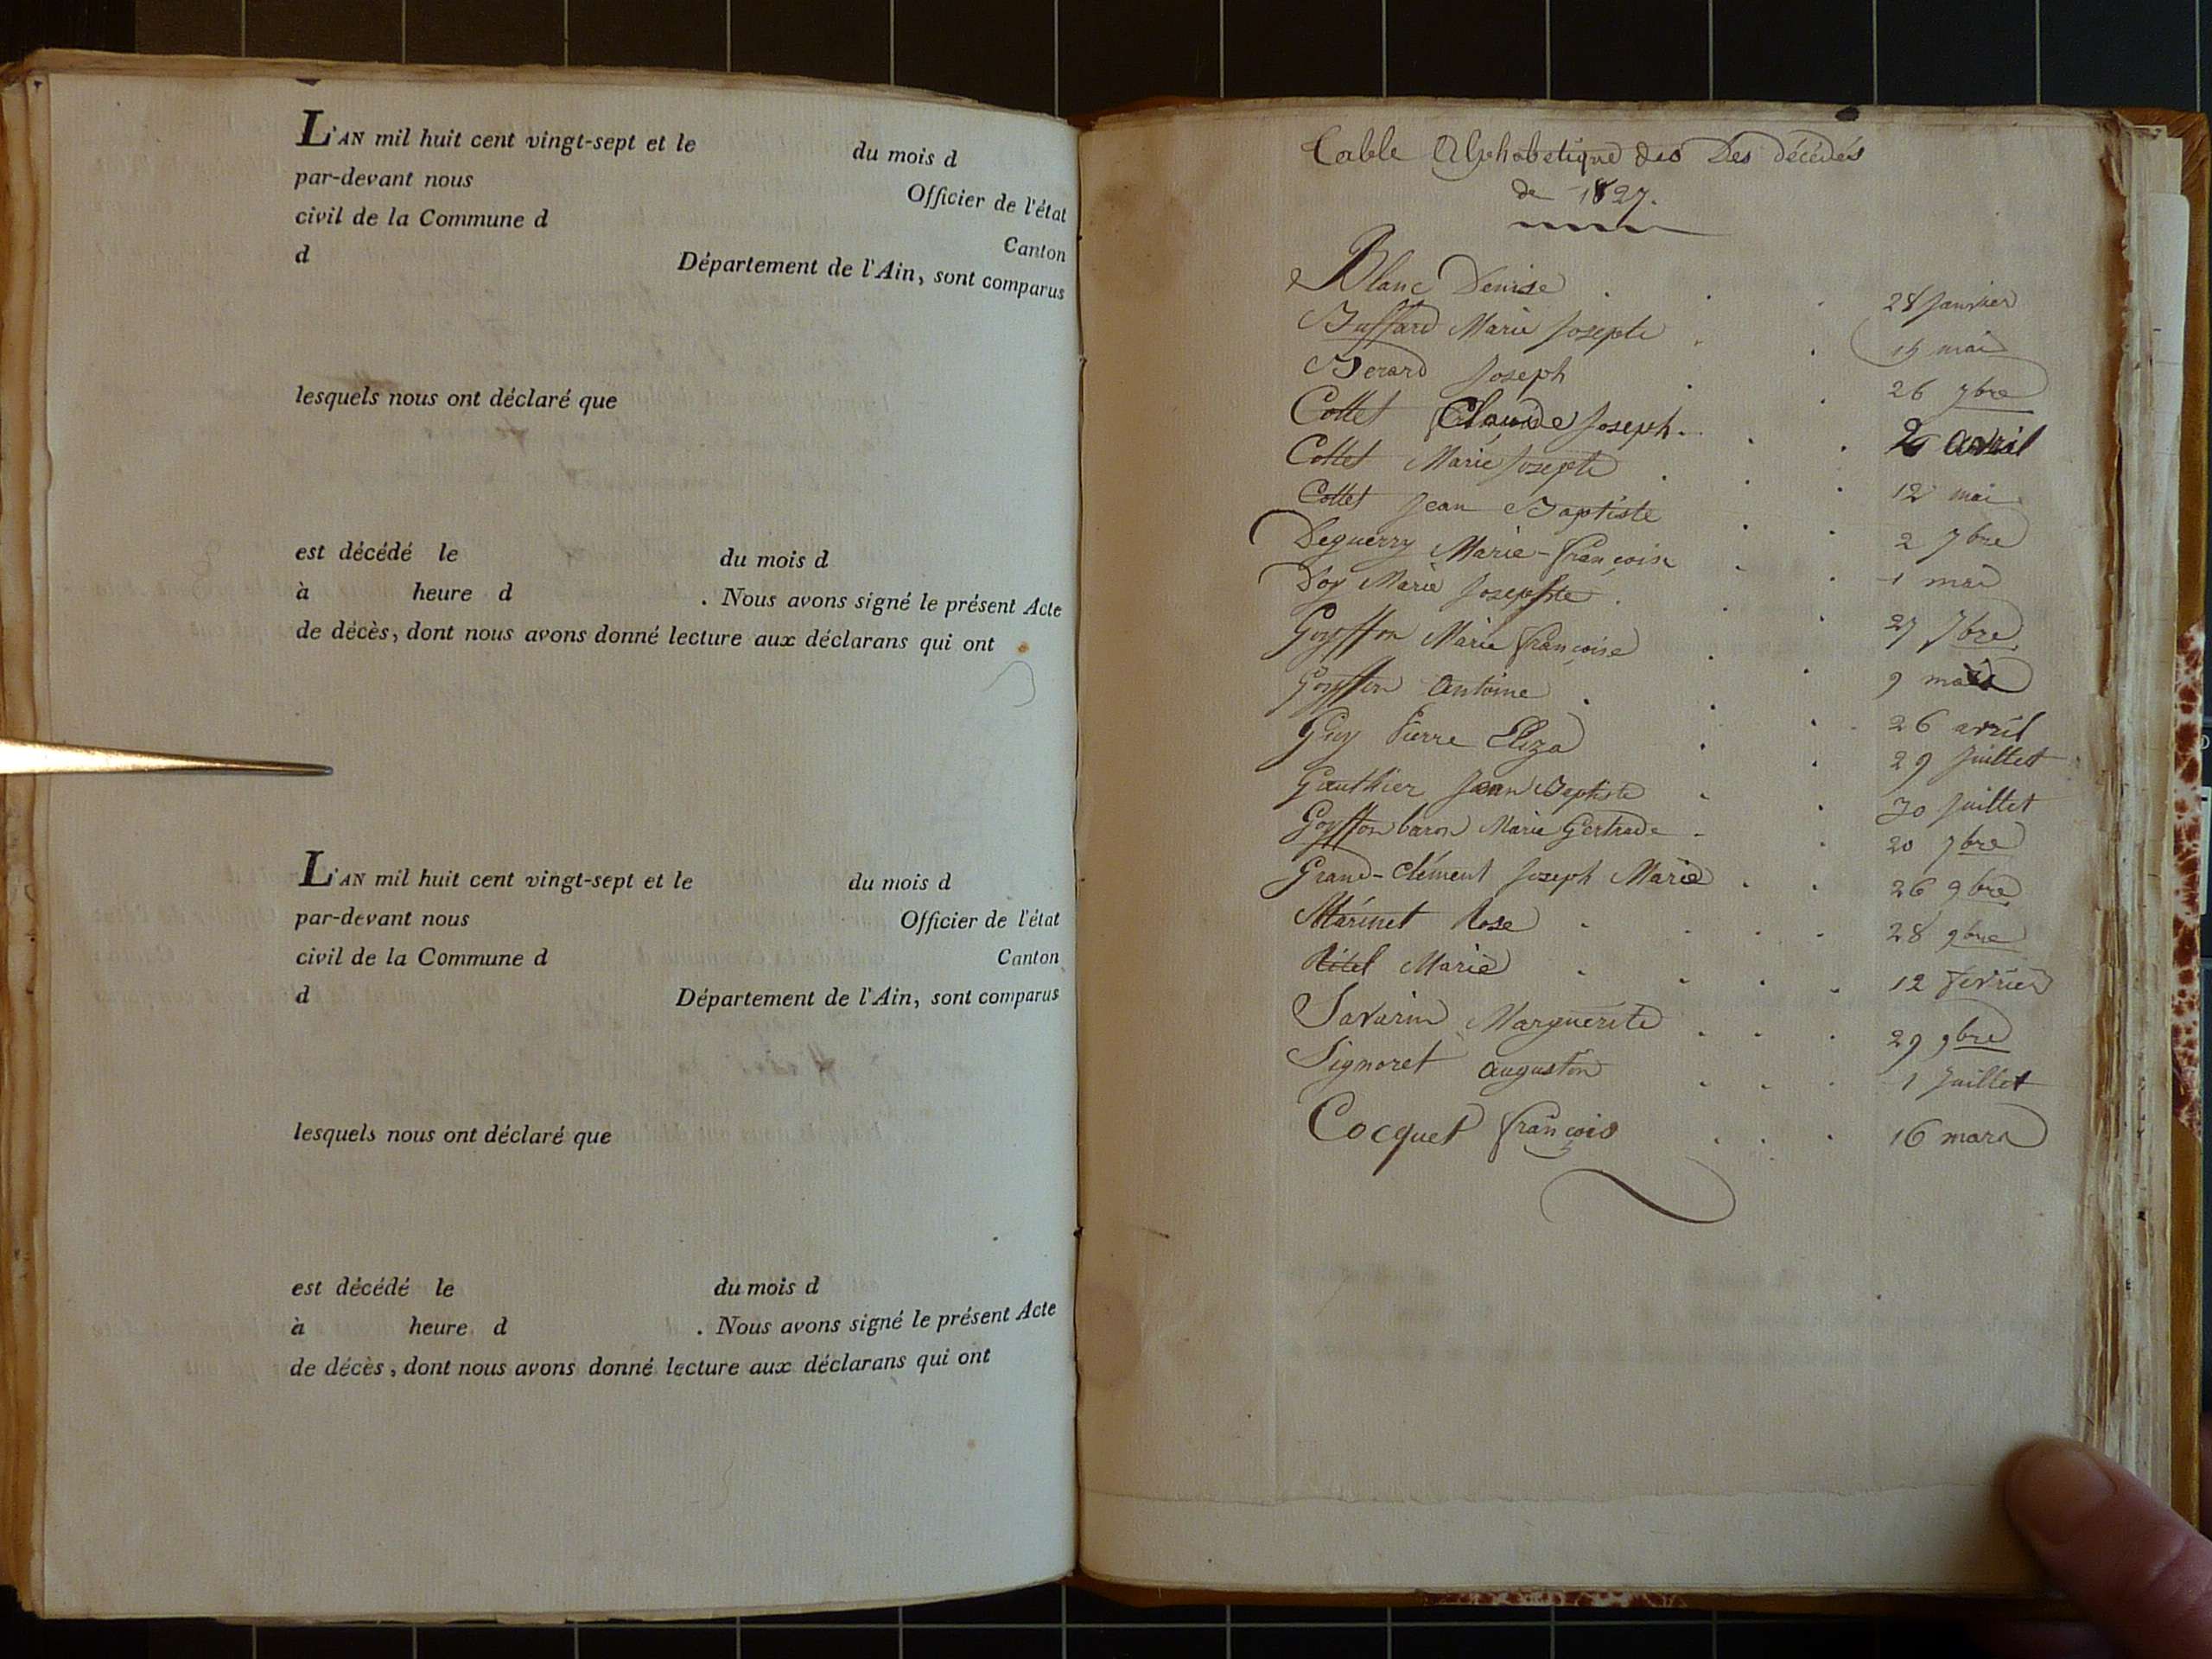 L'AN mil huit cent vingt-sept et le du mois d
par-devant nous Officier de l'état
civil de la Commune d Canton
d Département de l'Ain, sont comparus
lesquels nous ont déclaré que
est décédé le du mois d
à heure d . Nous avons signé le présent Acte
de décès, dont nous avons donné lecture aux déclarans qui ont
L'AN mil huit cent vingt-sept et le du mois d
par-devant nous Officier de l'état
civil de la Commune d Canton
d Département de l'Ain, sont comparus
lesquels nous ont déclaré que
est décédé le du mois d
à heure d . Nous avons signé le présent Acte
de décès, dont nous avons donné lecture aux déclarans qui ont
Table Alphabetique des Des décédés
de 1827.
Blanc Denise 28 Janvier
Buffard Marie Josepte mai
Berard Joseph 26 7bre
Collet Claude Joseph avril
Collet Marie Josepte 12 mai
Collet Jean Baptiste 2 7bre
Deguerry Marie-françoise 1 mai
Doy Marie Josephte 27 7bre
Goyffon Marie françoise 9 mars
Goyffon Antoine 26 avril
Guy Pierre Eliza 29 Juillet
Gauthier Jean Baptiste 30 Juillet
Goyffon baron Marie Gertrude 20 7bre
Grand-Clément Joseph Marie 26 9bre
Marinet Rose 28 9bre
Marie 12 fevrier
Savarin Marguerite 29 9bre
Signoret Augustin 1 Juillet
Cocquet françois 16 mars